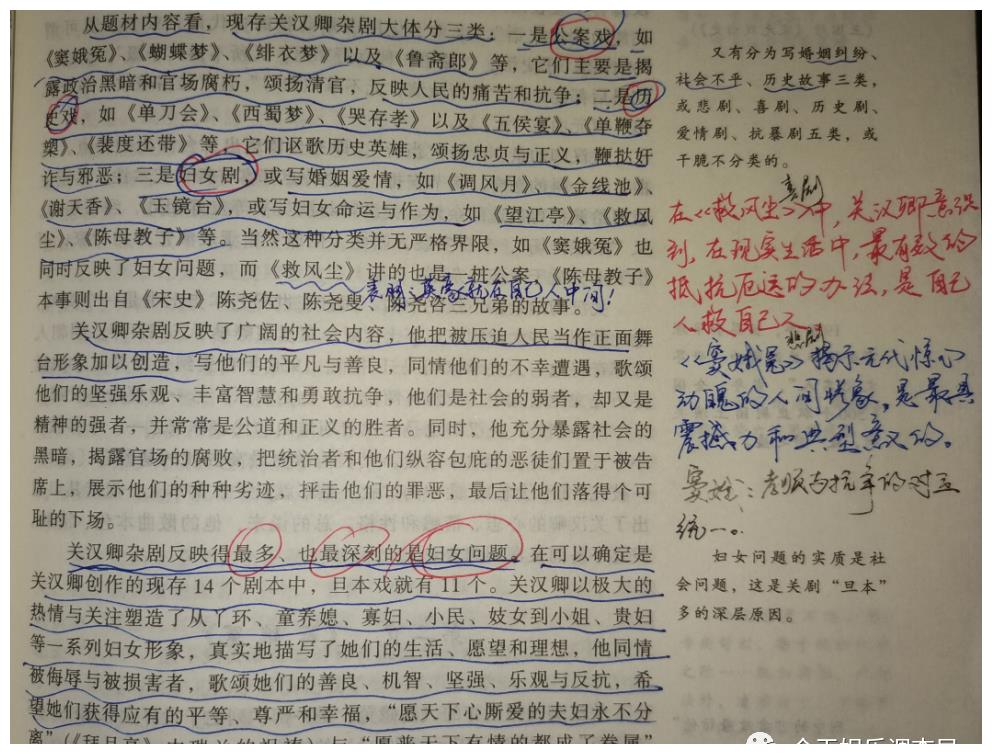 从题材内容看，现存关汉卿杂剧大体分三类：一是公案戏，如
《窦娥冤》、《蝴蝶梦》、《绯衣梦》以及《鲁斋郎》等，它们主要是揭
露政治黑暗和官场腐朽，颂扬清官，反映人民的痛苦和抗争；二是历
史戏，如《单刀会》、《西蜀梦》、《哭存孝》以及《五侯宴》、《单鞭夺
槊》、《裴度还带》等，它们讴歌历史英雄，颂扬忠贞与正义，鞭挞奸
诈与邪恶；三是妇女剧，或写婚姻爱情，如《调风月》、《金线池》、
《谢天香》、《玉镜台》，或写妇女命运与作为，如《望江亭》、《救风
尘》、《陈母教子》等。当然这种分类并无严格界限，如《窦娥冤》也
同时反映了妇女问题，而《救风尘》讲的也是一桩公案，《陈母教子》
表明：英豪就在自己人中间！
本事则出自《宋史》陈尧佐、陈尧叟、陈尧咨三兄弟的故事。
关汉卿杂剧反映了广阔的社会内容，他把被压迫人民当作正面舞
台形象加以创造，写他们的平凡与善良，同情他们的不幸遭遇，歌颂
他们的坚强乐观、丰富智慧和勇敢抗争，他们是社会的弱者，却又是
精神的强者，并常常是公道和正义的胜者。同时，他充分暴露社会的
黑暗，揭露官场的腐败，把统治者和他们纵容包庇的恶徒们置于被告
席上，展示他们的种种劣迹，抨击他们的罪恶，最后让他们落得个可
耻的下场。
关汉卿杂剧反映得最多、也最深刻的是妇女问题。在可以确定是
关汉卿创作的现存14个剧本中，旦本戏就有11个。关汉卿以极大的
热情与关注塑造了从丫环、童养媳、寡妇、小民、妓女到小姐、贵妇
等一系列妇女形象，真实地描写了她们的生活、愿望和理想，他同情
被侮辱与被损害者，歌颂她们的善良、机智、坚强、乐观与反抗，希
望她们获得应有的平等、尊严和幸福，“愿天下心厮爱的夫妇永不分
离”（《拜月亭》中瑞兰的祝祷）与“愿普天下有情的都成了眷属”
又有分为写婚姻纠纷、
社会不平、历史故事三类，
或悲剧、喜剧、历史剧、
爱情剧、抗暴剧五类，或
干脆不分类的。
喜剧
在《救风尘》中，关汉卿意识
到，在现实生活中，最有效的
抵抗厄运的办法，是自己
人救自己人
悲剧
《窦娥冤》揭示元代惊心
动魄的人间惨象，是最具
震撼力和典型意义的。
窦娥：孝顺与抗争的对立
统一。
妇女问题的实质是社
会问题，这是关剧“旦本”
多的深层原因。